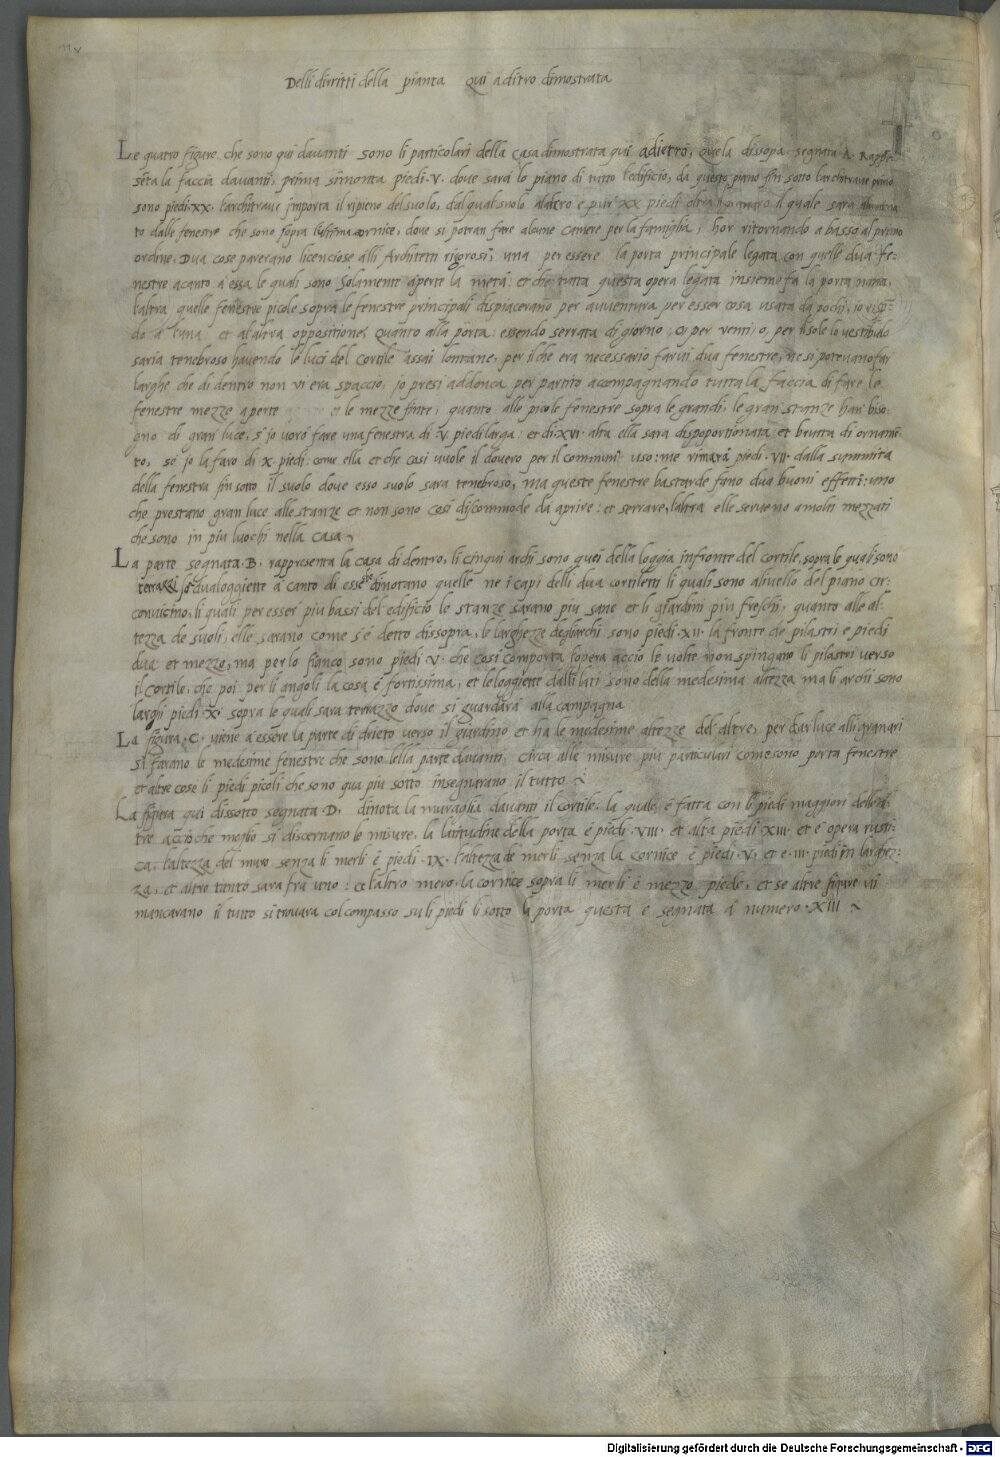 11v
Delli diritti della pianta qui aditro dimostrata
Le quatro figure che sono qui davanti sono li particolari della casa dimostrata qui adietro, quela dissopa segnata A. Rappre-
seta la faccia davanti, prima simonta piedi .V. dove sara lo piano di tutto ledificio, da questo piano fin sotto larchitrave primo
sono piedi .XX. larchitrave importa il ripieno del suolo, dal qual suolo alaltro e pur XX piedi il quale sara
to dalle fenestre che sono sopra cornice, dove si potran fare alcune camere per la famiglia; hor ritornando a basso al primo
ordine, Dua cose paverano licenciose alli Architetti rigorosi, una per essere la porta principale legata con quelle dua fe-
nestre acanto a essa le quali sono solamente aperte la metà: et che tutta questa opera legata insieme fa la porta nana,
laltra quelle fenestre picole sopra le fenestre principali dispiacerano per avventura per esser cosa usata da pochi, io
do a luna et alaltra oppositione, Quanto alla porta: essendo serrata di giorno, o per venti o, per il sole lo vestibulo
saria tenebroso havendo le luci del cortile assai lontane, per il che era necessario farvi dua fenestre, ne si potevano far
larghe che di dentro non vi era spaccio, io presi addonca per partito acompagnando tutta la faccia di fare le
fenestre mezze aperte et le mezze finte, quanto alle picole fenestre sopra le grandi, le gran stanze han biso-
gno di gran luce, s' io vorò fare una fenestra di V piedi larga: et di .XVI. alta ella sara dispoportionata et brutta di orname-
to, se io la faro di .X. piedi come ella et che cosi vuole il dovero per il commun uso: me rimarà piedi .VII. dalla summita
della fenestra fin sotto il suolo dove esso suolo sara tenebroso, ma queste fenestre bastarde fano dua buoni effetti: uno
che prestano gran luce alle stanze et non sono cosi discommode da aprire: et serrare, laltra elle serveno a molti mezzati
che sono in piu luochi nella casa
La parte segnata .B. rappresenta la casa di dentro, li cinqui archi sono quei della loggia infronte del cortile, sopra le quali sono
terazzi, le dua loggiette a canto di esse dinotano quelle ne i capi delli dua cortiletti li quali sono alivello del piano cir-
convicino, li quali per esser piu bassi del edificio le stanze sarano piu sane et li giardini piu freschi, quanto alle al-
tezza de suoli, elle sarano come s'è detto dissopra, le larghezze degliarchi sono piedi .XII. la fronte de pilastri e piedi
dua et mezzo, ma per lo fianco sono piedi .V. che cosi comporta lopera accio le volte non spingano li pilastri verso
il cortile, che poi per li angoli la cosa è fortissima, et le loggiette dalli lati sono della medesima altezza ma li archi sono
larghi piedi .X. sopra le quali sara terrazzo dove si guardarà alla campagna
La figura .C. viene a essere la parte di drieto verso il giardino et ha le medesime altezze del altre, per dar luce alli granari
si farano le medesime fenestre che sono lella parte davanti, circa alle misure piu particulari come sono porta fenestre
et altre cose li piedi picoli che sono qua piu sotto insegnarano il tutto
La figura qui dissotto segnata .D. dinota la muraglia davanti il cortile, la quale è fatta con li piedi maggiori dell al-
tre accio che meglio si discernano le misure, la latitudine della porta è piedi .VIII. et alta piedi XIII. et e opera rusti-
ca, laltezza del muro senza li merli è piedi .IX. laltezza de merli senza la cornice è piedi .V. et e .III. piedi in larghez-
za, et altre tanto sara fra uno: et laltro mero. la cornice sopra li merli è mezzo piede, et se altre figure vi
mancarano il tutto si trovara col compasso su li piedi li sotto la porta questa e segnata a numero .XIII
Digitalisierung gefördert durch die Deutsche Forschungsgemeinschaft - DFG